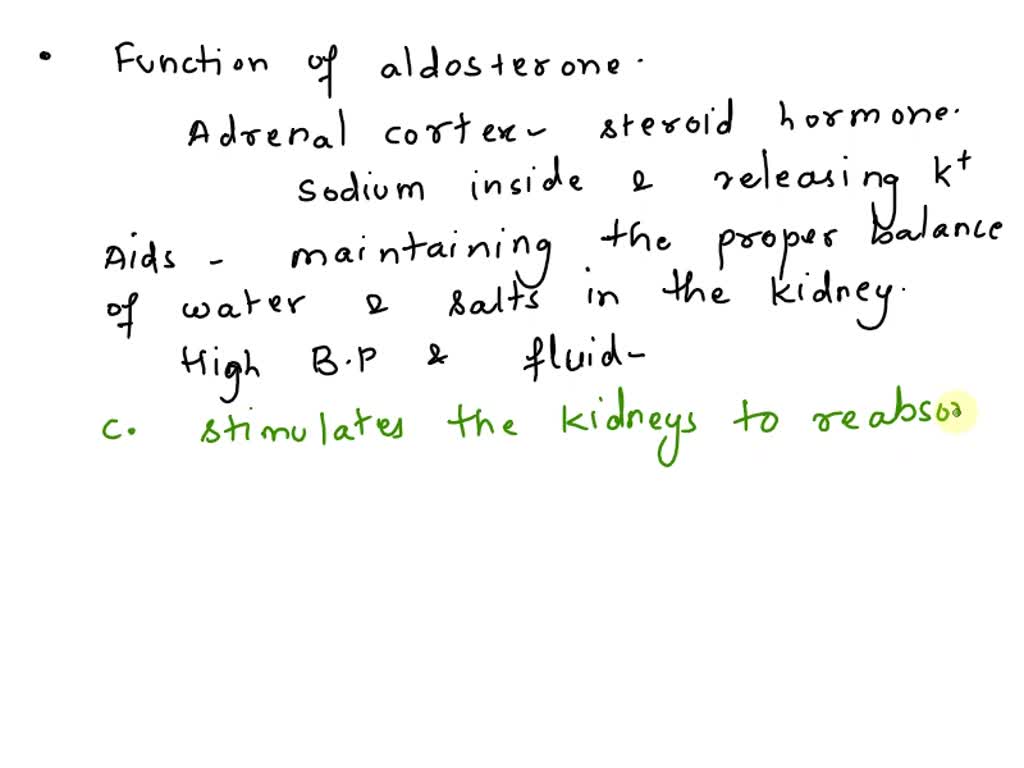 • Function of aldosterone.
Adrenal cortex - steroid hormone.
Sodium inside & releasing K+
Aids - maintaining the proper balance
of water & salts in the kidney.
High B.P & fluid -
C. stimulates the kidneys to reabsor